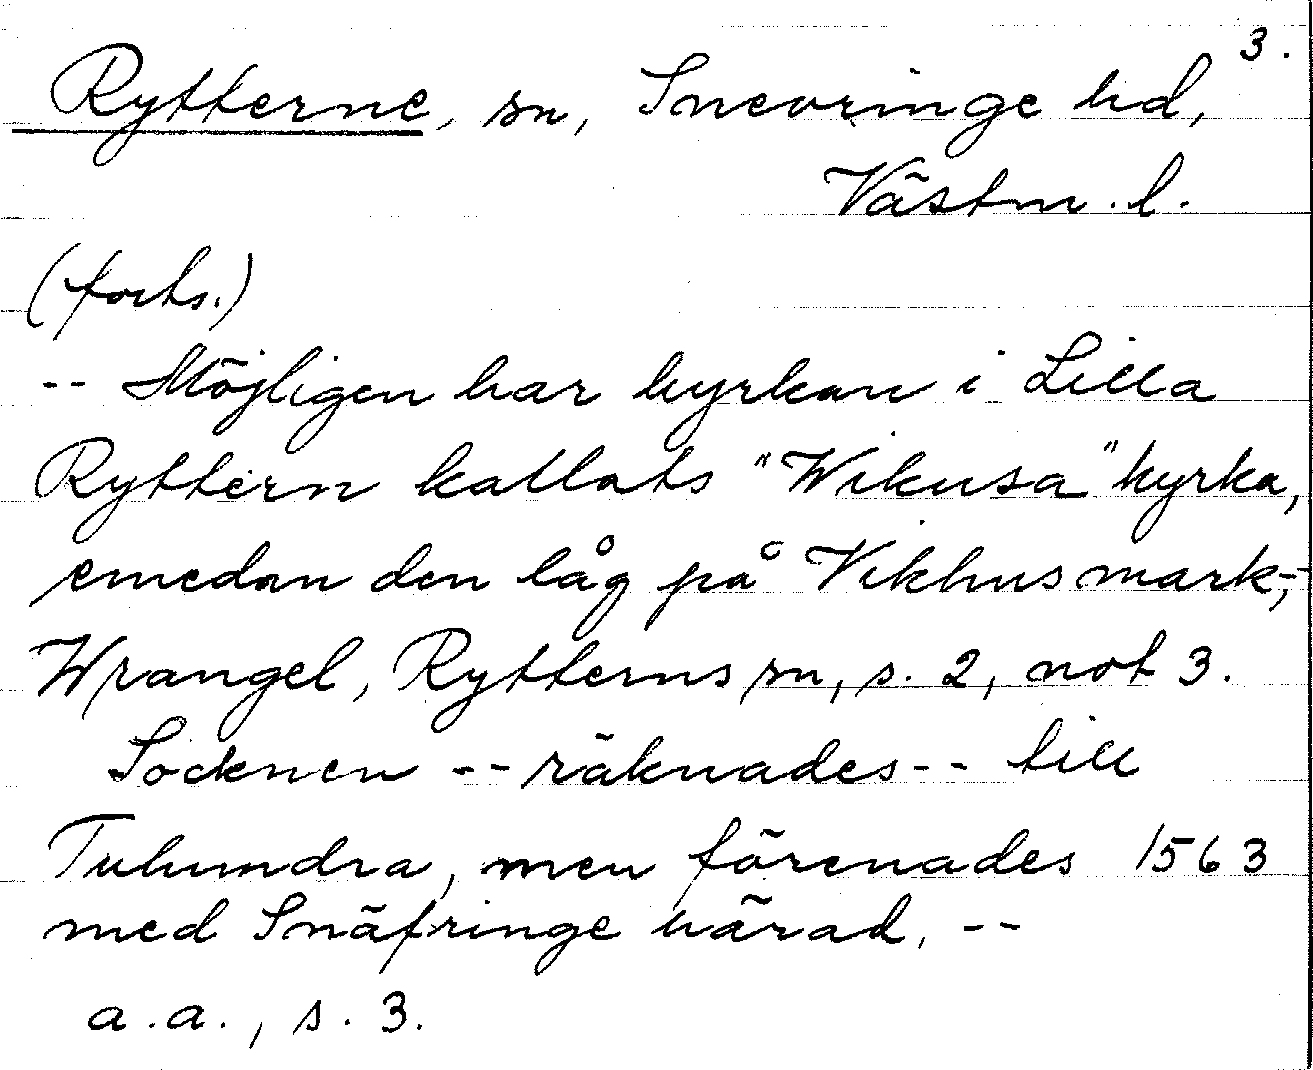 3.
Rytterne, sn, Snevringe hd,
Västm. l.
(forts.)
-- Möjligen har kyrkan i Lilla
Ryttern kallats "Wikusa" kyrka,
emedan den låg på Vikhus mark,--
Wrangel, Rytterns sn, s. 2, not 3.
Socknen -- räknades -- till
Tuhundra, men förenades 1563
med Snäfringe härad, --
a.a., s. 3.